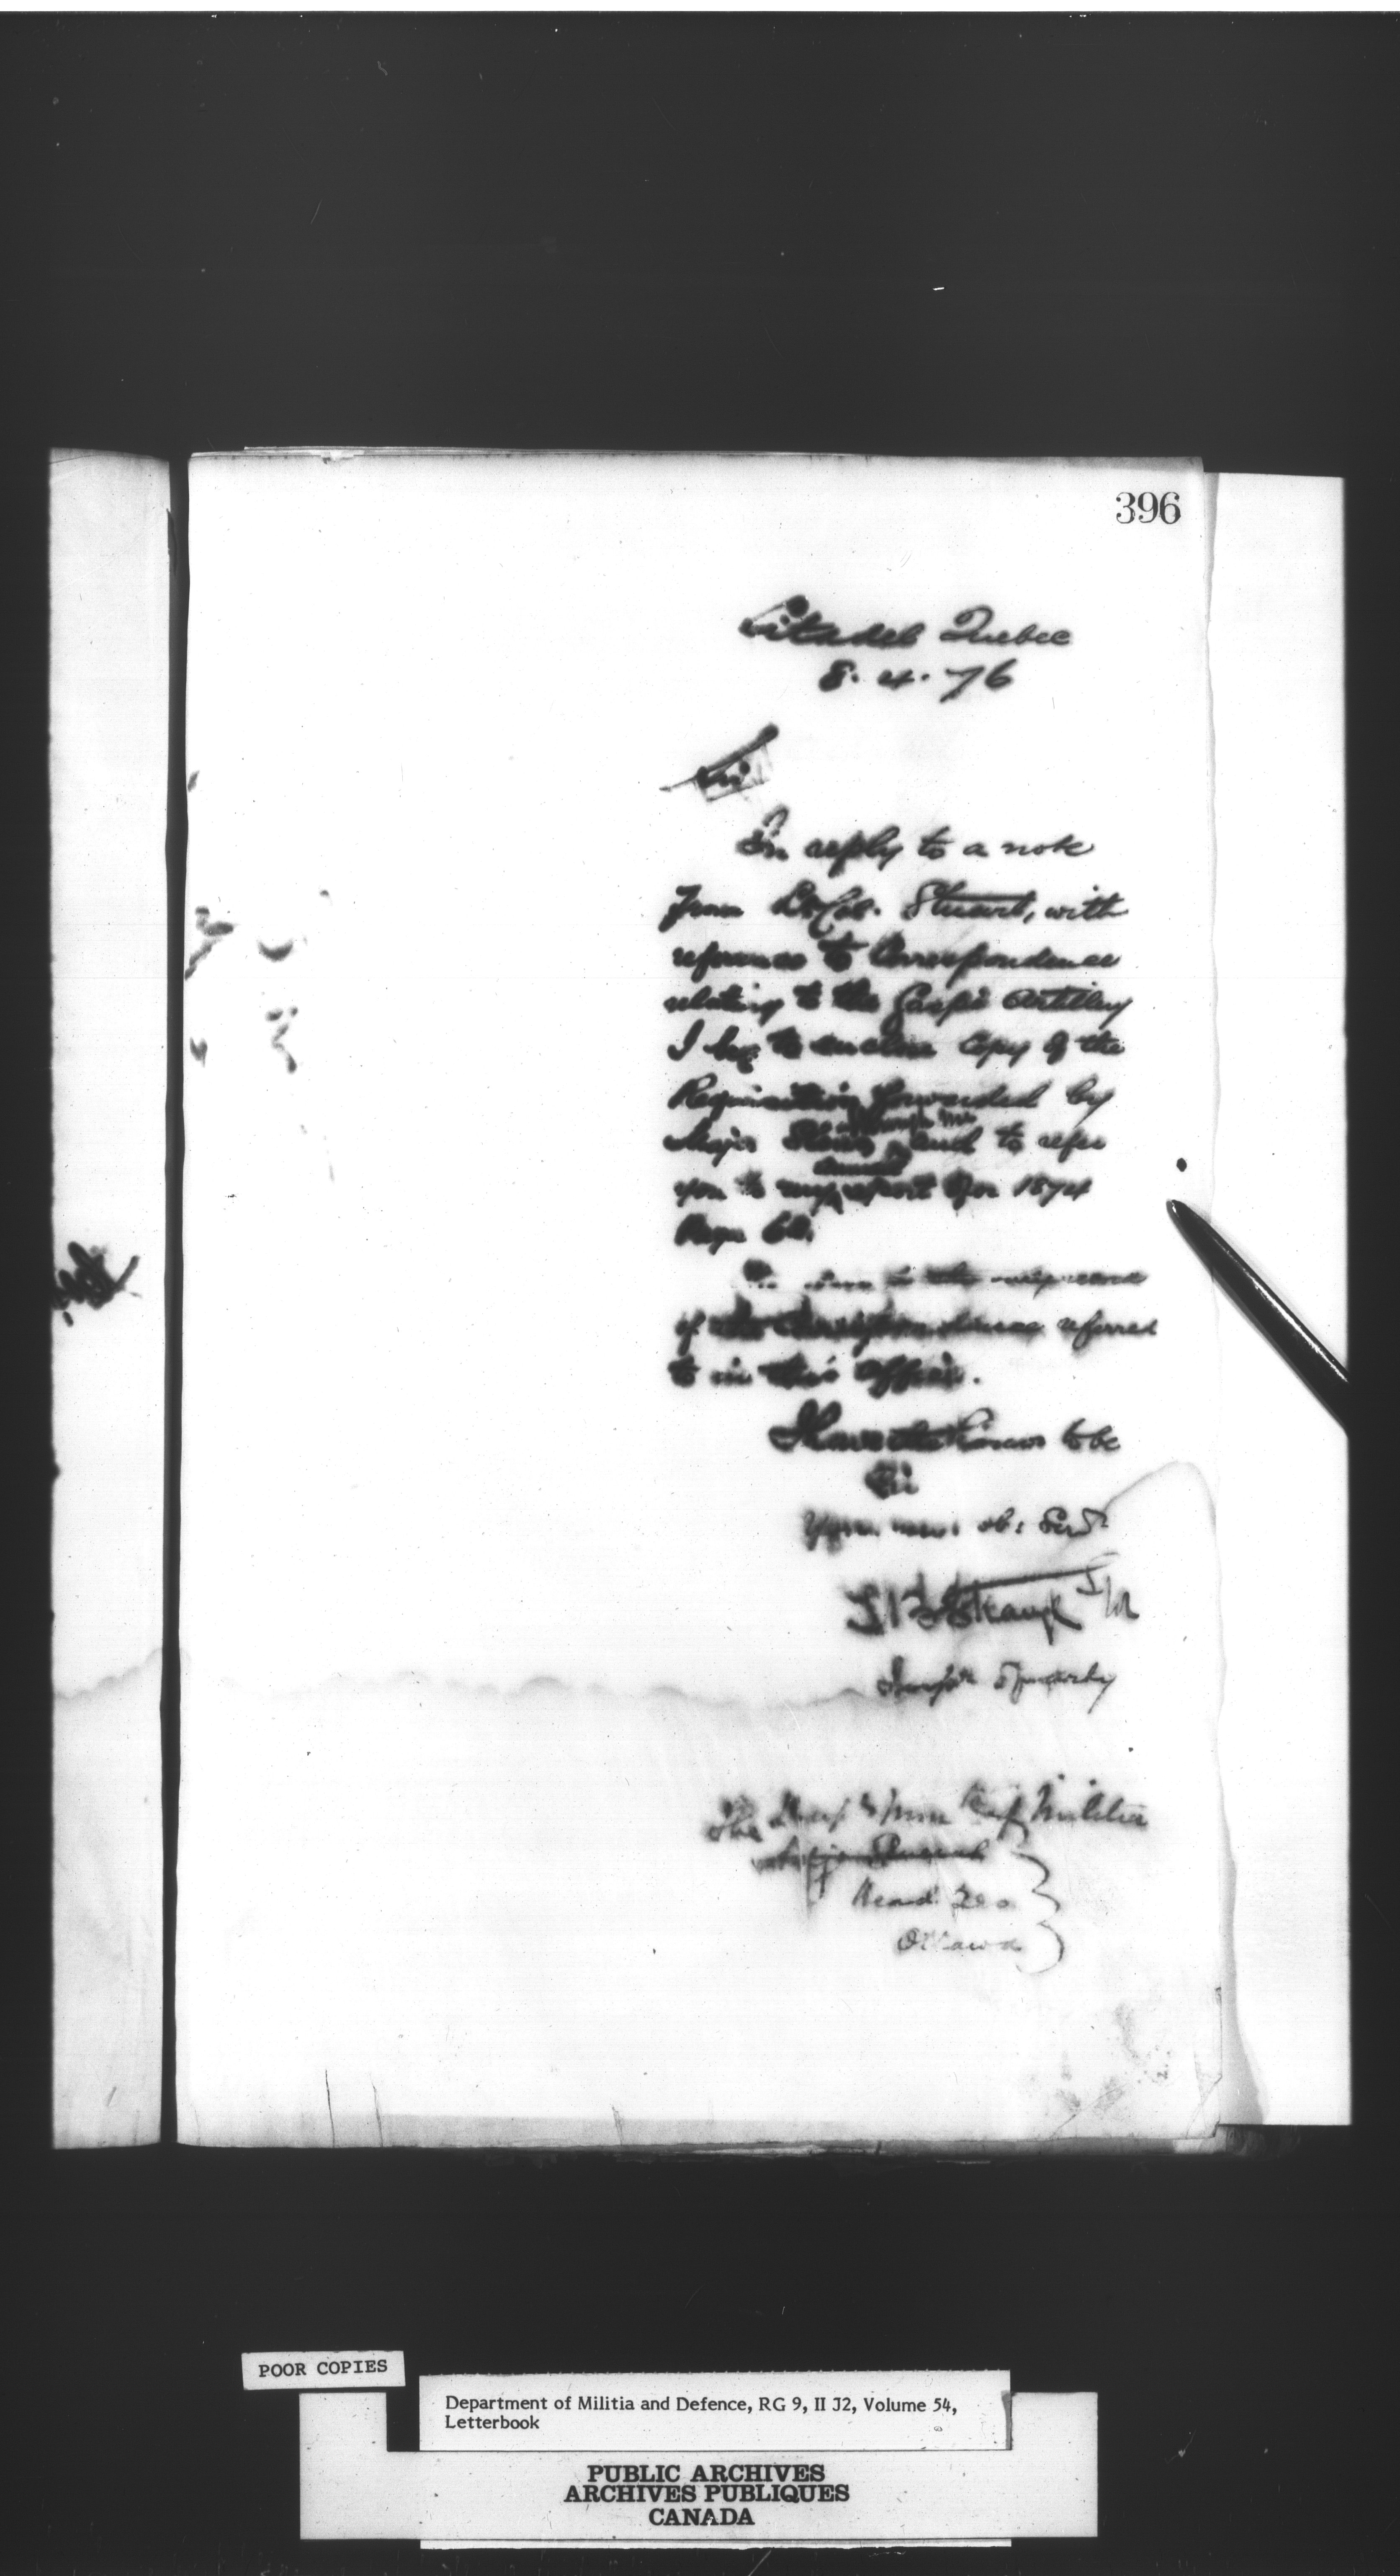 396
Citadel Quebec
8. 4. 76
Sir
In reply to a note
from Lt Col. Stuart, with
reference to Correspondence
relating to the Gaspé Artillery
I beg to enclose Copy of the
Requisition forwarded by
through me
Major and to refer
annual
you to my report for 1874
Page
of the Correspondence referred
to in this Office.
I have the honor to be
Sir
Your most ob: Servt
TB Strange
The of Militia
Head Qrs
Ottawa
POOR COPIES
Department of Militia and Defence, RG 9, II J2, Volume 54,
Letterbook
PUBLIC ARCHIVES
ARCHIVES PUBLIQUES
CANADA